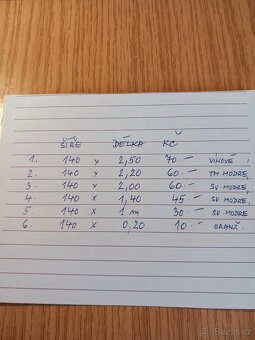 ŠÍŘE DÉLKA KČ
1. 140 x 2,50 70.- VÍNOVĚ,
2. 140 x 2,20 60.- TM MODRE,
3. 140 x 2,00 60.- SV. MODRE,
4. 140 x 1,40 45.- SV. MODRE,
5. 140 x 1 m 30.- SV. MODRE
6. 140 x 0,20 10.- ORANŽ.